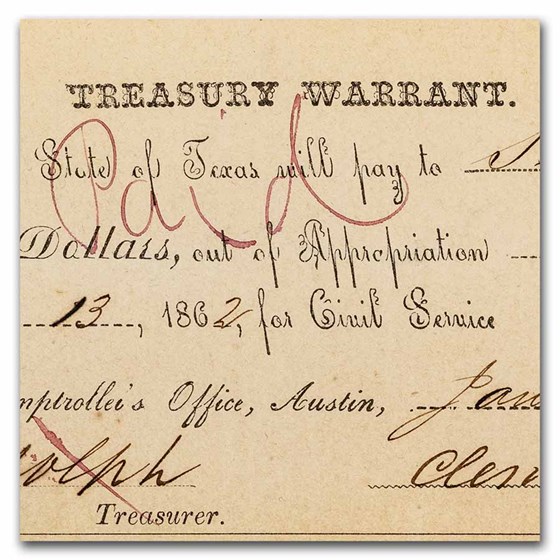 TREASURY WARRANT.
Paid
State of Texas will pay to
Dollars, out of Appropriation
13, 1862, for Civil Service
mptroller's Office, Austin, Jan
olph Cler
Treasurer.